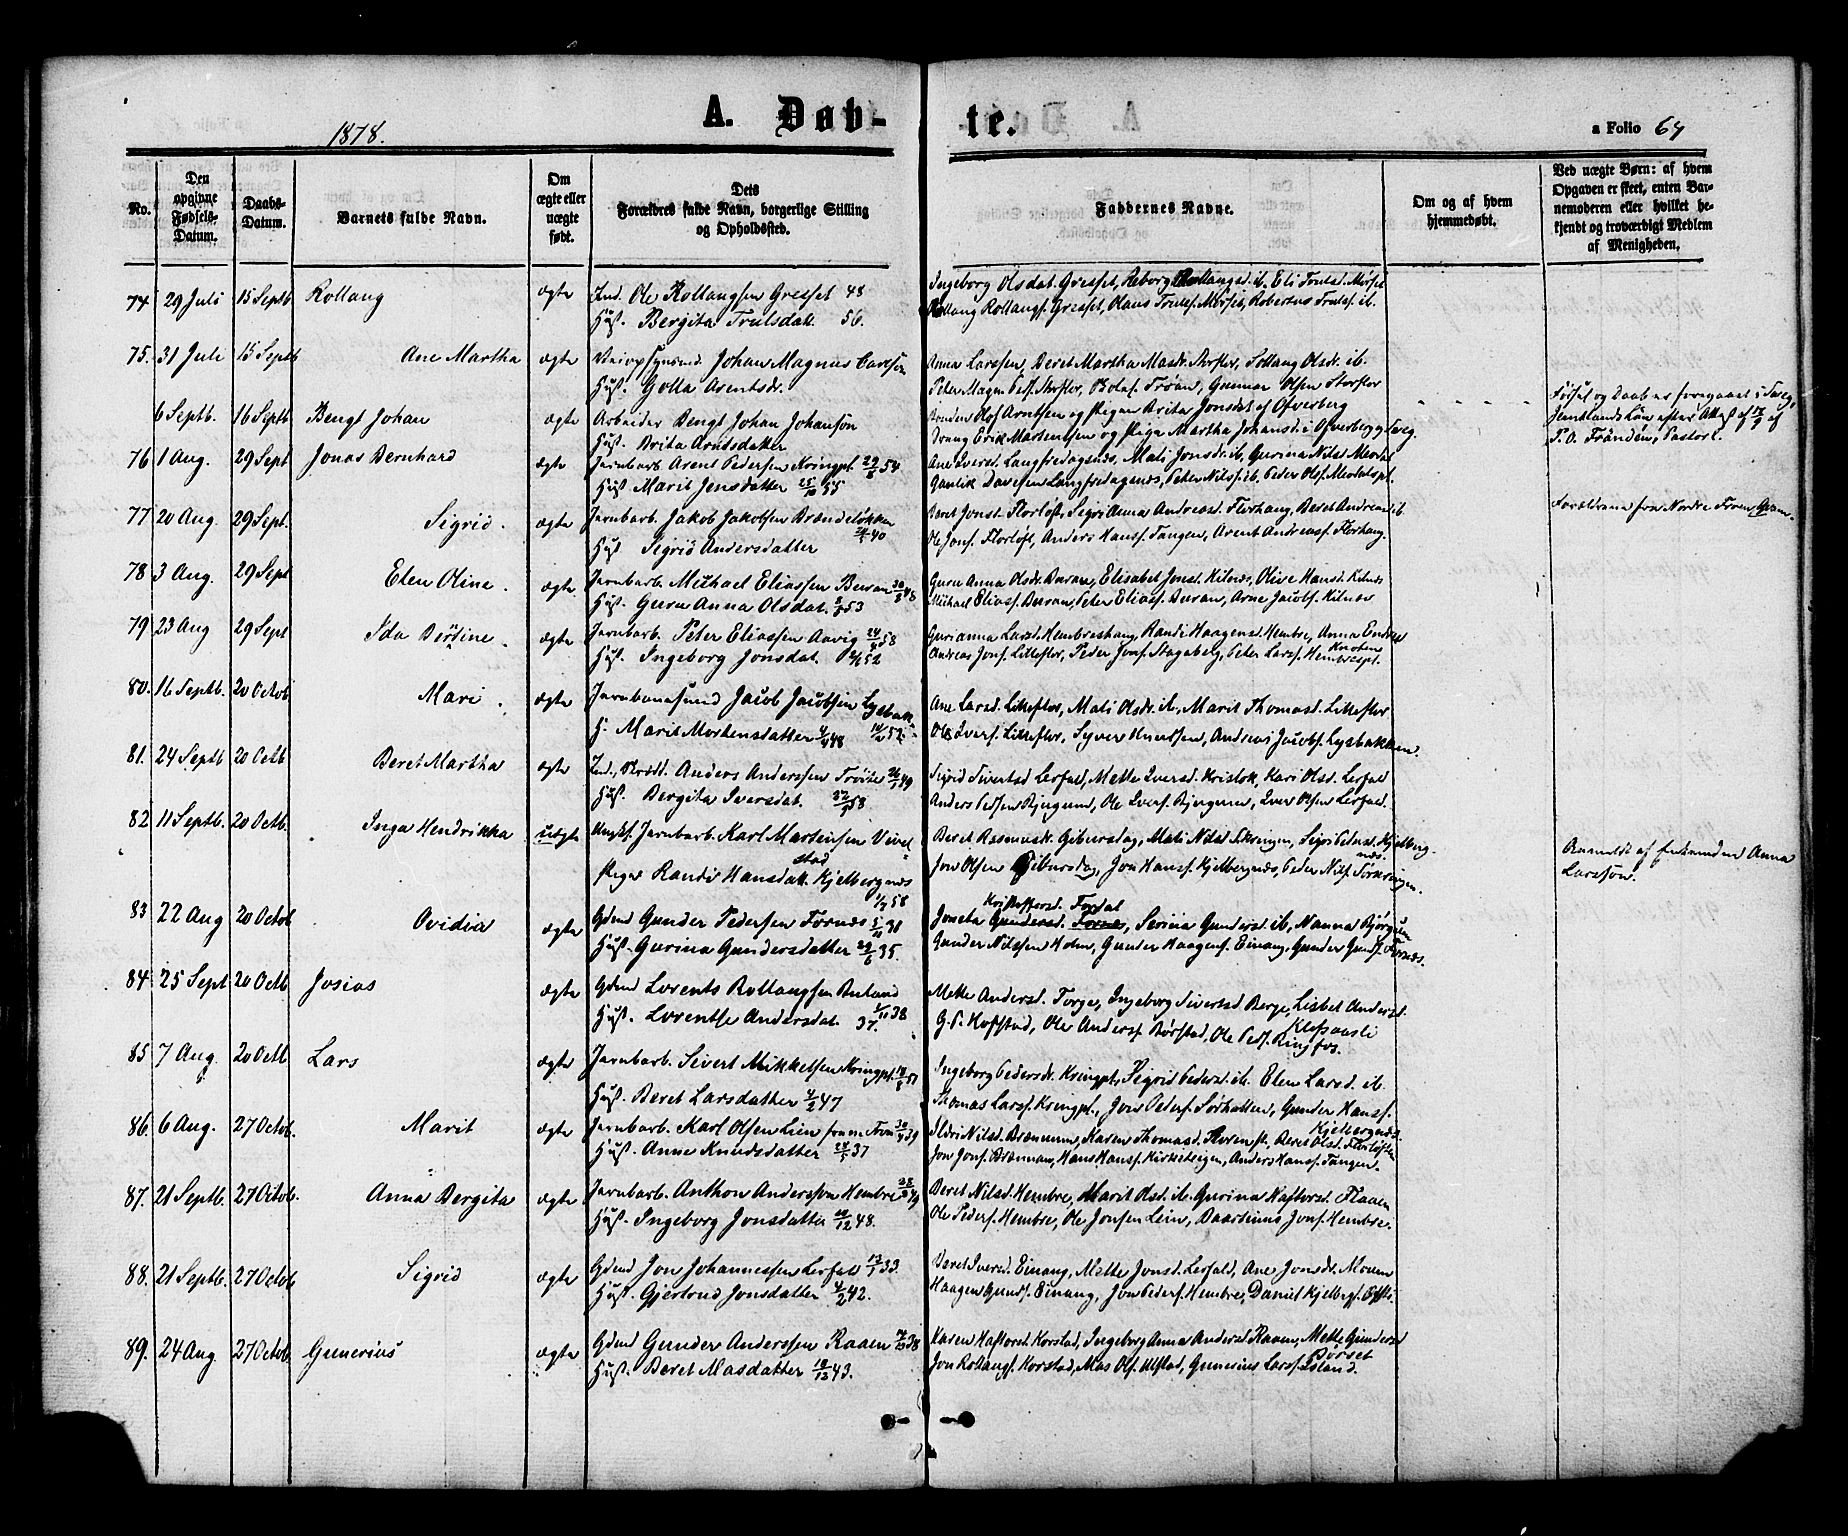 1878.
A. Døb-
te.
a Folio 64
No.
Den opgivne Fødsels-Datum.
Daabs-Datum.
Barnets fulde Navn.
Om ægte eller uægte født.
Dets Forældres fulde Navn, borgerlige Stilling og Opholdssted.
Faddernes Navne.
Om og af hvem hjemmedøbt.
Ved uægte Børn: af hvem Opgaven er skeet, enten Barnemoderen eller hvilket bekjendt og troværdigt Medlem af Menigheden.
74 29 Juli 15 Septb Rollaug ægte Ind. Ole Rollaugsen Gresset 48
Hust. Bergita Trulsdatt. 56.
Ingeborg Olsdat. Gresset, Rollaugsd. ib. Eli Trulsd. Morset
Rollaug Rollaugs. Gresset, Hans Truls. Morset, Robertus Truls. ib.
75. 31 Juli 15 Septb Ane Martha ægte Johan Magnus Carlson
Hust. Golla Arentsdr.
Anna Larssen, Beret Martha Masdr. Ollaug Olsdr. ib.
Gunnar Olsen Storflor
6 Septb. 16 Septb Bengt Johan ægte Arbeider Bengt Johan Johanson
Hust. Brita Arnsdatter
Bonden Olof Arntsen og Pigen Brita Jonsdat. af Ofverberg
Dreng Erik Martensen og Pige Martha Johansd. i Ofverberg
Fødsel og Daab er foregaaet i
Jemtlands Län efter Attest af
76 1 Aug. 29 Sept Jonas Bernhard ægte Jernbarb. Arent Pedersen Kringpl. 29/8 54
Hust. Marit Jensdatter 25/10 55
Ane Iversd. Langfredagsnæs, Mali Jonsdr. ib, Gurina Nilsd.
Langfredagsnæs, Peter Nils. ib. Peder Ols.
77 20 Aug 29 Sept. Sigrid. ægte Jernbarb. Jakob Jakobsen Brændeløkken
Hust Sigrid Andersdatter
Beret Jonsd. Florløft, Sigrianna Andreasd. Florhaug, Beret Andreasd. ib
Ole Jons. Florløft, Anders Hans. Tangen, Arent Andreass. Florhaug.
Forældrene fra Nordre Fron,
78 3 Aug. 29 Sept Elen Oline. ægte Jernbarb. Mikael Eliassen Buran 48
Hust. Guru Anna Olsdat. 53
Guru Anna Olsdr. Buran, Elisabet Jonsd. Kilnes, Olive Hansd. Kilnes
Michael Elias. Buran, Peter Elias. Buran, Arne Jacobs. Kilnes
79 23 Aug 29 Sept Ida Bersine. ægte Jernbarb. Peter Eliassen Aavig 24/4 58
Hust. Ingeborg Jonsdat. 52
Gurianna Larsd. Hembrehaug, Randi Haagensd. Hembre, Anna Endresd
Andreas Jons. Litleflor, Peder Jons. Stageberg, Peter Lars. Hembrespl.
80. 16 Septb. 20 Octob Mari. ægte Jacob Jacobsen Lysbak
H. Marit Mortensdatter 48
Ane Larsd. Litleflor, Mali Olsdr. ib, Marit Thomasd. Litleflor
Ole Ivers. Litleflor, Syver Knudsen, Andreas Jacobs. Lysbakken.
81. 24 Septb 20 Octb Beret Martha ægte Ind. Anders Anderssen 49
Hust. Bergita Iversdat. 53.
Sigrid Sivertsd Lerfald, Mette Iversd. Kari Olsd. Lerfald
Anders Peds. Bjergum, Ole Ivers. Bjergum, Iver Olsen Lerfald.
82 11 Septb. 20 Octb. Inga Hendrikka uægte Ungk. Jernbarb. Karl Martensen
Pigen Randi Hansdat. Kjelbergnæs 58
Beret Rasmusd. Giburdag, Mali Nilsd Skringen, Sigri Pedersd. Kjelbergnæs.
Jon Olsen Giburdag, Jon Hans. Kjelbergnæs, Peder Nils.
Anmeldt af Anna
Larsson.
83 22 Aug 20 Octob Ovidia ægte Gdmd Gunder Pedersen Fornes 5/11 31
Hust. Gurina Gundersdatter 29/6 35.
Kristoffersd. Fordal
Joneta Gundersd. Fornes, Serina Gundersd ib, Nanna Bjørgum
Gunder Nilssen Holm, Gunder Haagens. Einang, Gunder Gunds. Fornæs.
84. 25 Sept 20 Octb Josias ægte Gdmd Lorents Rollaugsen 38
Hust. Lorentse Andersdat. 37.
Mette Andersd. Forge, Ingeborg Sivertsd Berge, Lisbet Andersd.
Hofstad, Ole Anders. Børstad, Ole Peds. Ringfos.
85 7 Aug. 20 Octb Lars ægte Jernbarb. Sivert Mikkelsen Kringpl. 51
Hust. Beret Larsdatter 4/2 47
Ingeborg Pedersdr. Kringpl., Sigrid Pedersd. ib. Elen Larsd. ib.
Thomas Lars. Kringpl., Jon Peders. Gunder Hans.
Kjelbergnæs.
86. 6 Aug. 27 Octob. Marit ægte Jernbarb. Karl Olsen Lien 39
Hust. Anne Knudsdatter 37
Ildri Nilsd. Brannum, Karen Thomasd. Beret Olsd. Florløften
Jon Jons. Brannum, Hans Hans. Kirketeigen, Anders Hans. Tangen.
87. 21 Septb. 27 Octob. Anna Bergita ægte Jernbarb. Anthon Anderssen Hembre 49
Hust. Ingeborg Jonsdatter 10/12 48.
Beret Nilsd. Hembre, Marit Olsd. ib. Gurina Haftorsd. Flaaen
Ole Peders. Hembre, Ole Jonsen Lein, Baartinus Jons. Hembre.
88. 21 Septb. 27 Octob Sigrid ægte Gdmd Jon Johannessen Lerfald 13/1 33
Hust. Gjertrud Jonsdatter 4/2 42.
Beret Iversd. Einang, Mette Jonsd. Lerfald, Ane Jonsdr. Moum
Haagen Gunds. Einang, Jon Peders. Hembre, Daniel Kjelbergs.
89. 24 Aug 27 Octob Gunerius ægte Gdmd Gunder Anderssen Raaen 38
Hust. Beret Masdatter 10/12 43.
Karen Haftorsd. Korstad, Ingeborg Anna Andersd Raaen, Mette Gundersd Børset
Jon Rollaugs. Korstad, Mas Ols. Ulstad, Gunerius Lars. Island.